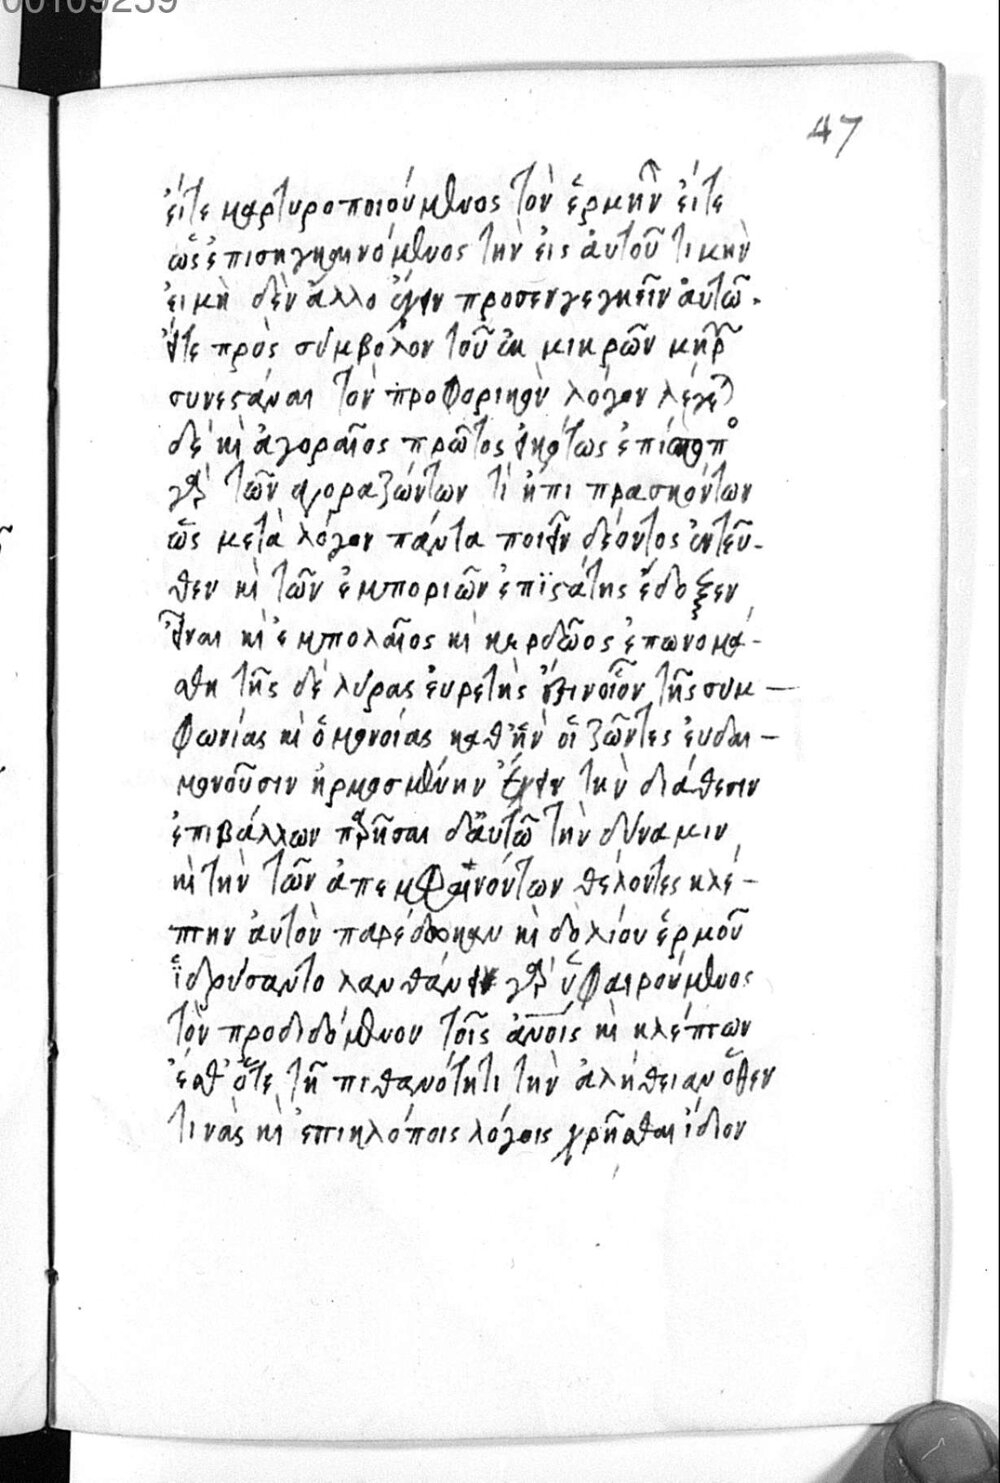 00109259
47
εἴτε μαρτυροποιούμενος τὸν ἑρμῆν εἴτε
ὡς ἐπισημηνόμενος τὴν εἰς αὐτοῦ τιμὴν
εἰ μὴ δὲν ἄλλο ἔχειν προσενεγκεῖν αὐτῶ.
εἴτε πρὸς σύμβολον τοῦ ἐκ μικρῶν μερῶν
συνεστάναι τὸν προφορικὸν λόγον λέγεται
δὲ καὶ ἀγοραῖος πρῶτος εἰκότως ἐπίσκοπος
γὰρ τῶν ἀγοραζόντων τί ἢ πιπρασκόντων
ὡς μετὰ λόγον πάντα ποιεῖν δέοντος ἐντεῦ-
θεν καὶ τῶν ἐμποριῶν ἐπϊστάτης ἔδοξεν
εἶναι καὶ ἐμπολαῖος καὶ κερδῶος ἐπωνομά-
σθη τῆς δὲ λύρας εὑρετὴς ἐστιν οἷον τῆς συμ-
φωνίας καὶ ὁμονοίας καθ' ἣν οἱ ζῶντες εὐδαι-
μονοῦσιν ἡρμοσμένην ἔχειν τὴν διάθεσιν
ἐπιβάλλων παραστῆσαι δ' αὐτῶ τὴν δύναμιν
καὶ τὴν τῶν ἀπεμφαινόντων θέλοντες κλέ-
πτην αὐτὸν παρέδωκαν καὶ δολίου ἑρμοῦ
ἱδρύσαντο λανθάνει γὰρ ὑφαιρούμενος
τὸν προδιδόμενον τοῖς ἀνοις καὶ κλέπτων
ἔσθ' ὅτε τῆ πιθανότητι τὴν ἀλήθειαν ὅθεν
τινὰς καὶ ἐπικλόποις λόγοις χρῆσθαι ἴδιον